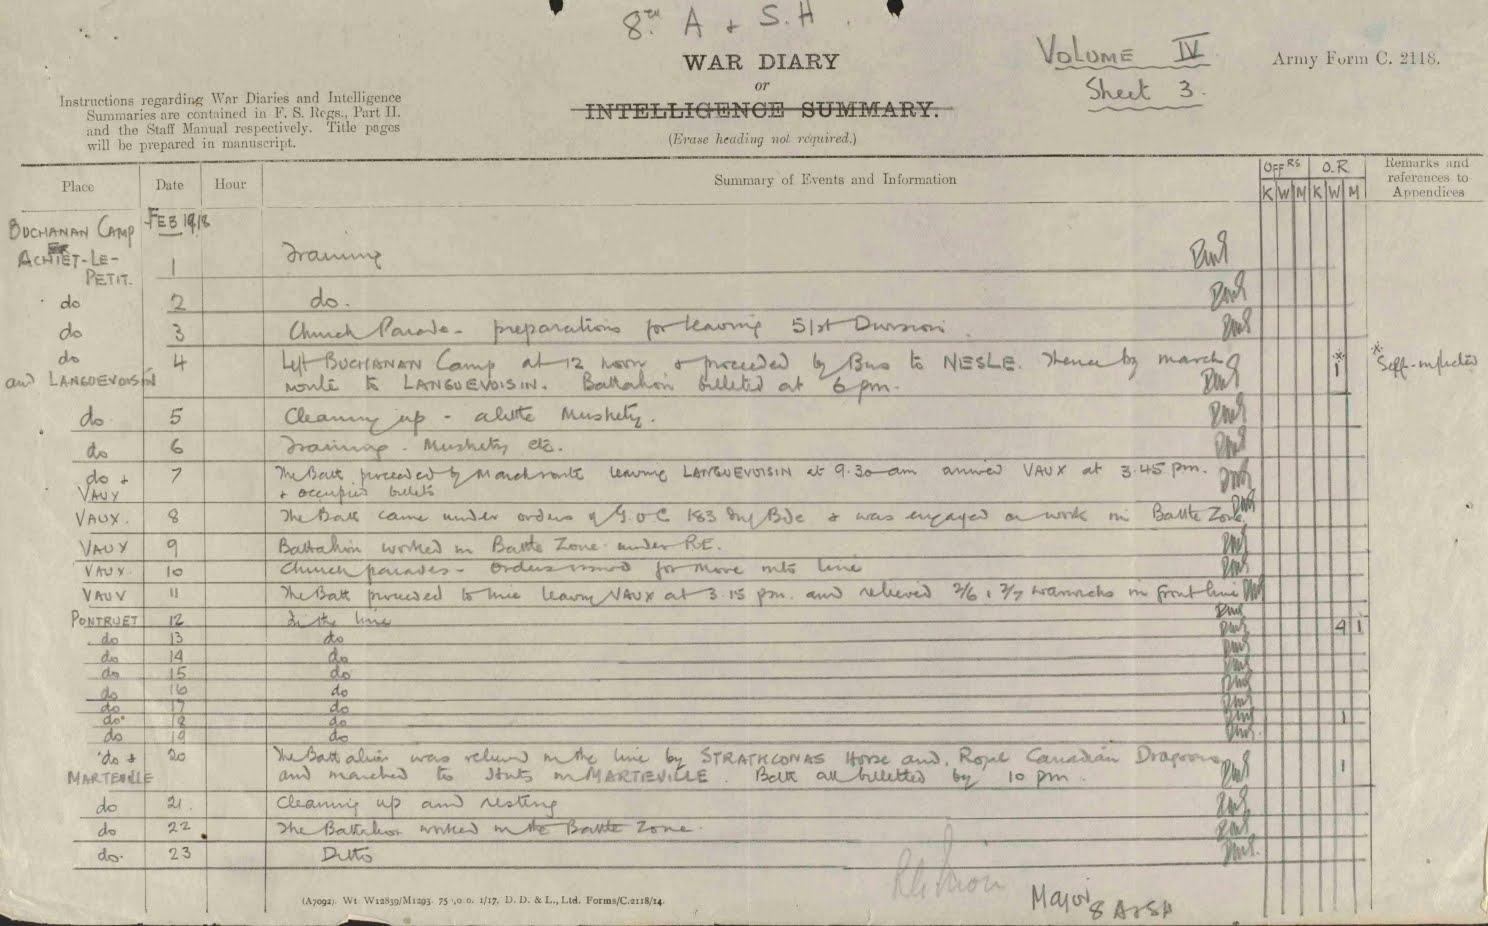 8TH A & S.H.
WAR DIARY
or
INTELLIGENCE SUMMARY.
(Erase heading not required.)
VOLUME IV
Sheet 3.
Army Form C. 2118.
Instructions regarding War Diaries and Intelligence
Summaries are contained in F. S. Regs., Part II.
and the Staff Manual respectively. Title pages
will be prepared in manuscript.
Place Date Hour Summary of Events and Information OFFRS O.R Remarks and references to Appendices
K W M K W M
BUCHANAN CAMP FEB 1918
ACHIET-LE-
PETIT. 1 Training
do 2 do.
do 3 Church Parade - preparations for leaving 51st Division.
do 4 Left BUCHANAN Camp at 12 noon & proceeded by Bus to NESLE. Thence by march 1* * Self-inflicted
and LANGUEVOISIN route to LANGUEVOISIN. Battalion billeted at 6 pm.
do. 5 Cleaning up - a little Musketry.
do 6 Training. Musketry etc.
do & 7 The Batt. proceeded by March route leaving LANGUEVOISIN at 9.30 am arrived VAUX at 3.45 pm.
VAUX & occupied billets
VAUX. 8 The Batt came under orders of G.O.C 183 Inf Bde & was engaged on work in Battle Zone
VAUX 9 Battalion worked in Battle Zone under R.E.
VAUX 10 Church parades - orders issued for move into line
VAUX 11 The Batt proceeded to line leaving VAUX at 3.15 pm. and relieved 2/6 & 2/7 Warwicks in front line
PONTRUET 12 In the line
do 13 do 4 1
do 14 do
do 15 do
do 16 do
do 17 do
do 18 do 1
do 19 do
do & 20 The Battalion was relieved in the line by STRATHCONAS Horse and Royal Canadian Dragoons
MARTEVILLE and marched to Huts in MARTEVILLE. Batt all billetted by 10 pm. 1
do 21. Cleaning up and resting
do 22 The Battalion worked in the Battle Zone.
do. 23 Ditto
Major
8 A & SH
(A7092). Wt W12839/M1293. 75 ,0 0. 1/17. D. D. & L., Ltd. Forms/C.2118/14.